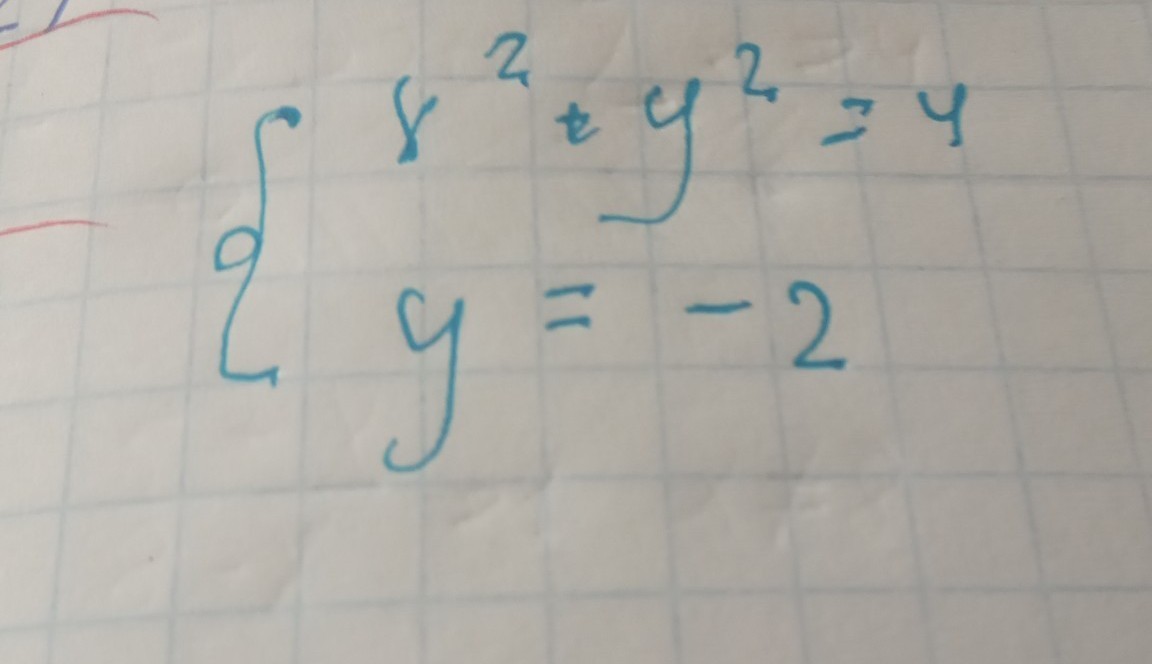 8² + y² = 4
y = - 2